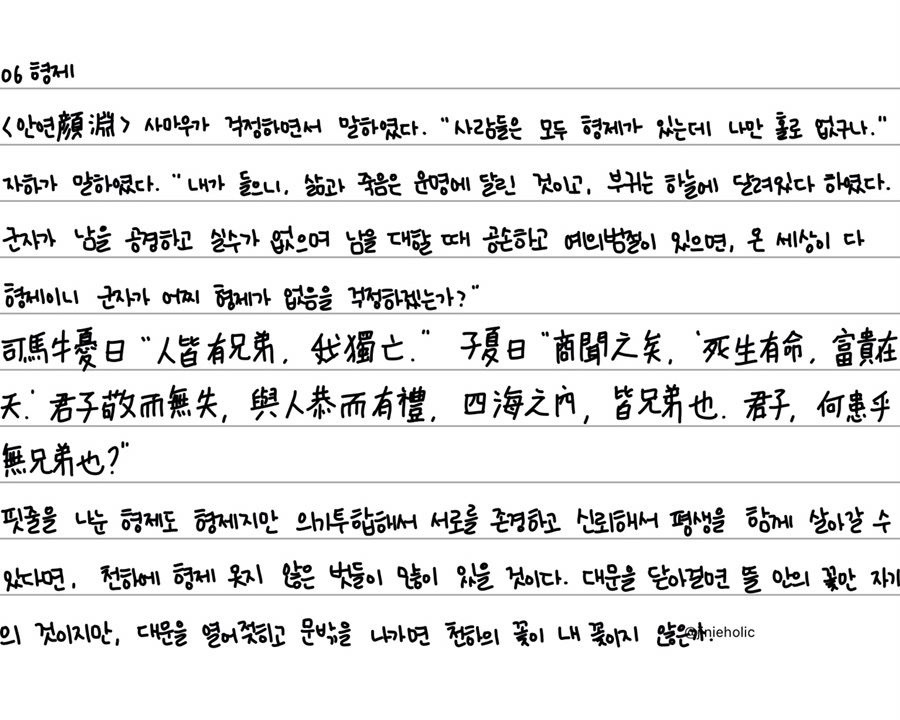 06 형제
<안연顔淵> 사마우가 걱정하면서 말하였다. "사람들은 모두 형제가 있는데 나만 홀로 없구나."
자하가 말하였다. "내가 들으니, 삶과 죽음은 운명에 달린 것이고, 부귀는 하늘에 달려있다 하였다.
군자가 남을 공경하고 실수가 없으며 남을 대할 때 공손하고 예의범절이 있으면, 온 세상이 다
형제이니 군자가 어찌 형제가 없음을 걱정하겠는가?"
司馬牛憂曰 "人皆有兄弟, 我獨亡." 子夏曰 "商聞之矣, '死生有命, 富貴在
天.' 君子敬而無失, 與人恭而有禮, 四海之內, 皆兄弟也. 君子, 何患乎
無兄弟也?"
핏줄을 나눈 형제도 형제지만 의기투합해서 서로를 존경하고 신뢰해서 평생을 함께 살아갈 수
있다면, 천하에 형제 못지 않은 벗들이 많이 있을 것이다. 대문을 닫아걸면 뜰 안의 꽃만 자기
의 것이지만, 대문을 열어젖히고 문밖을 나가면 천하의 꽃이 내 꽃이지 않은가.